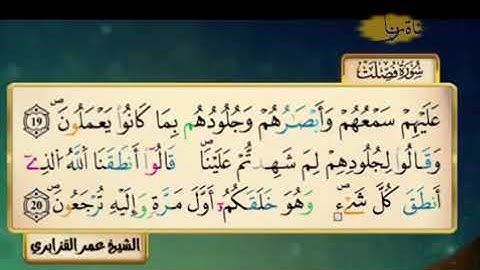 سُورَةُ فُصِّلَتْ
عَلَيْهِمْ سَمْعُهُمْ وَأَبْصَٰرُهُمْ وَجُلُودُهُم بِمَا كَانُوا۟ يَعْمَلُونَۖ 19
وَقَالُوا۟ لِجُلُودِهِمْ لِمَ شَهِدتُّمْ عَلَيْنَاۖ قَالُوٓا۟ أَنطَقَنَا اَ۬للَّهُ اُ۬لذِےٓ
أَنطَقَ كُلَّ شَےْءٖۖ وَهُوَ خَلَقَكُمُۥٓ أَوَّلَ مَرَّةٖ وَإِلَيْهِ تُرْجَعُونَۖ 20
الشيخ عمر القزابري